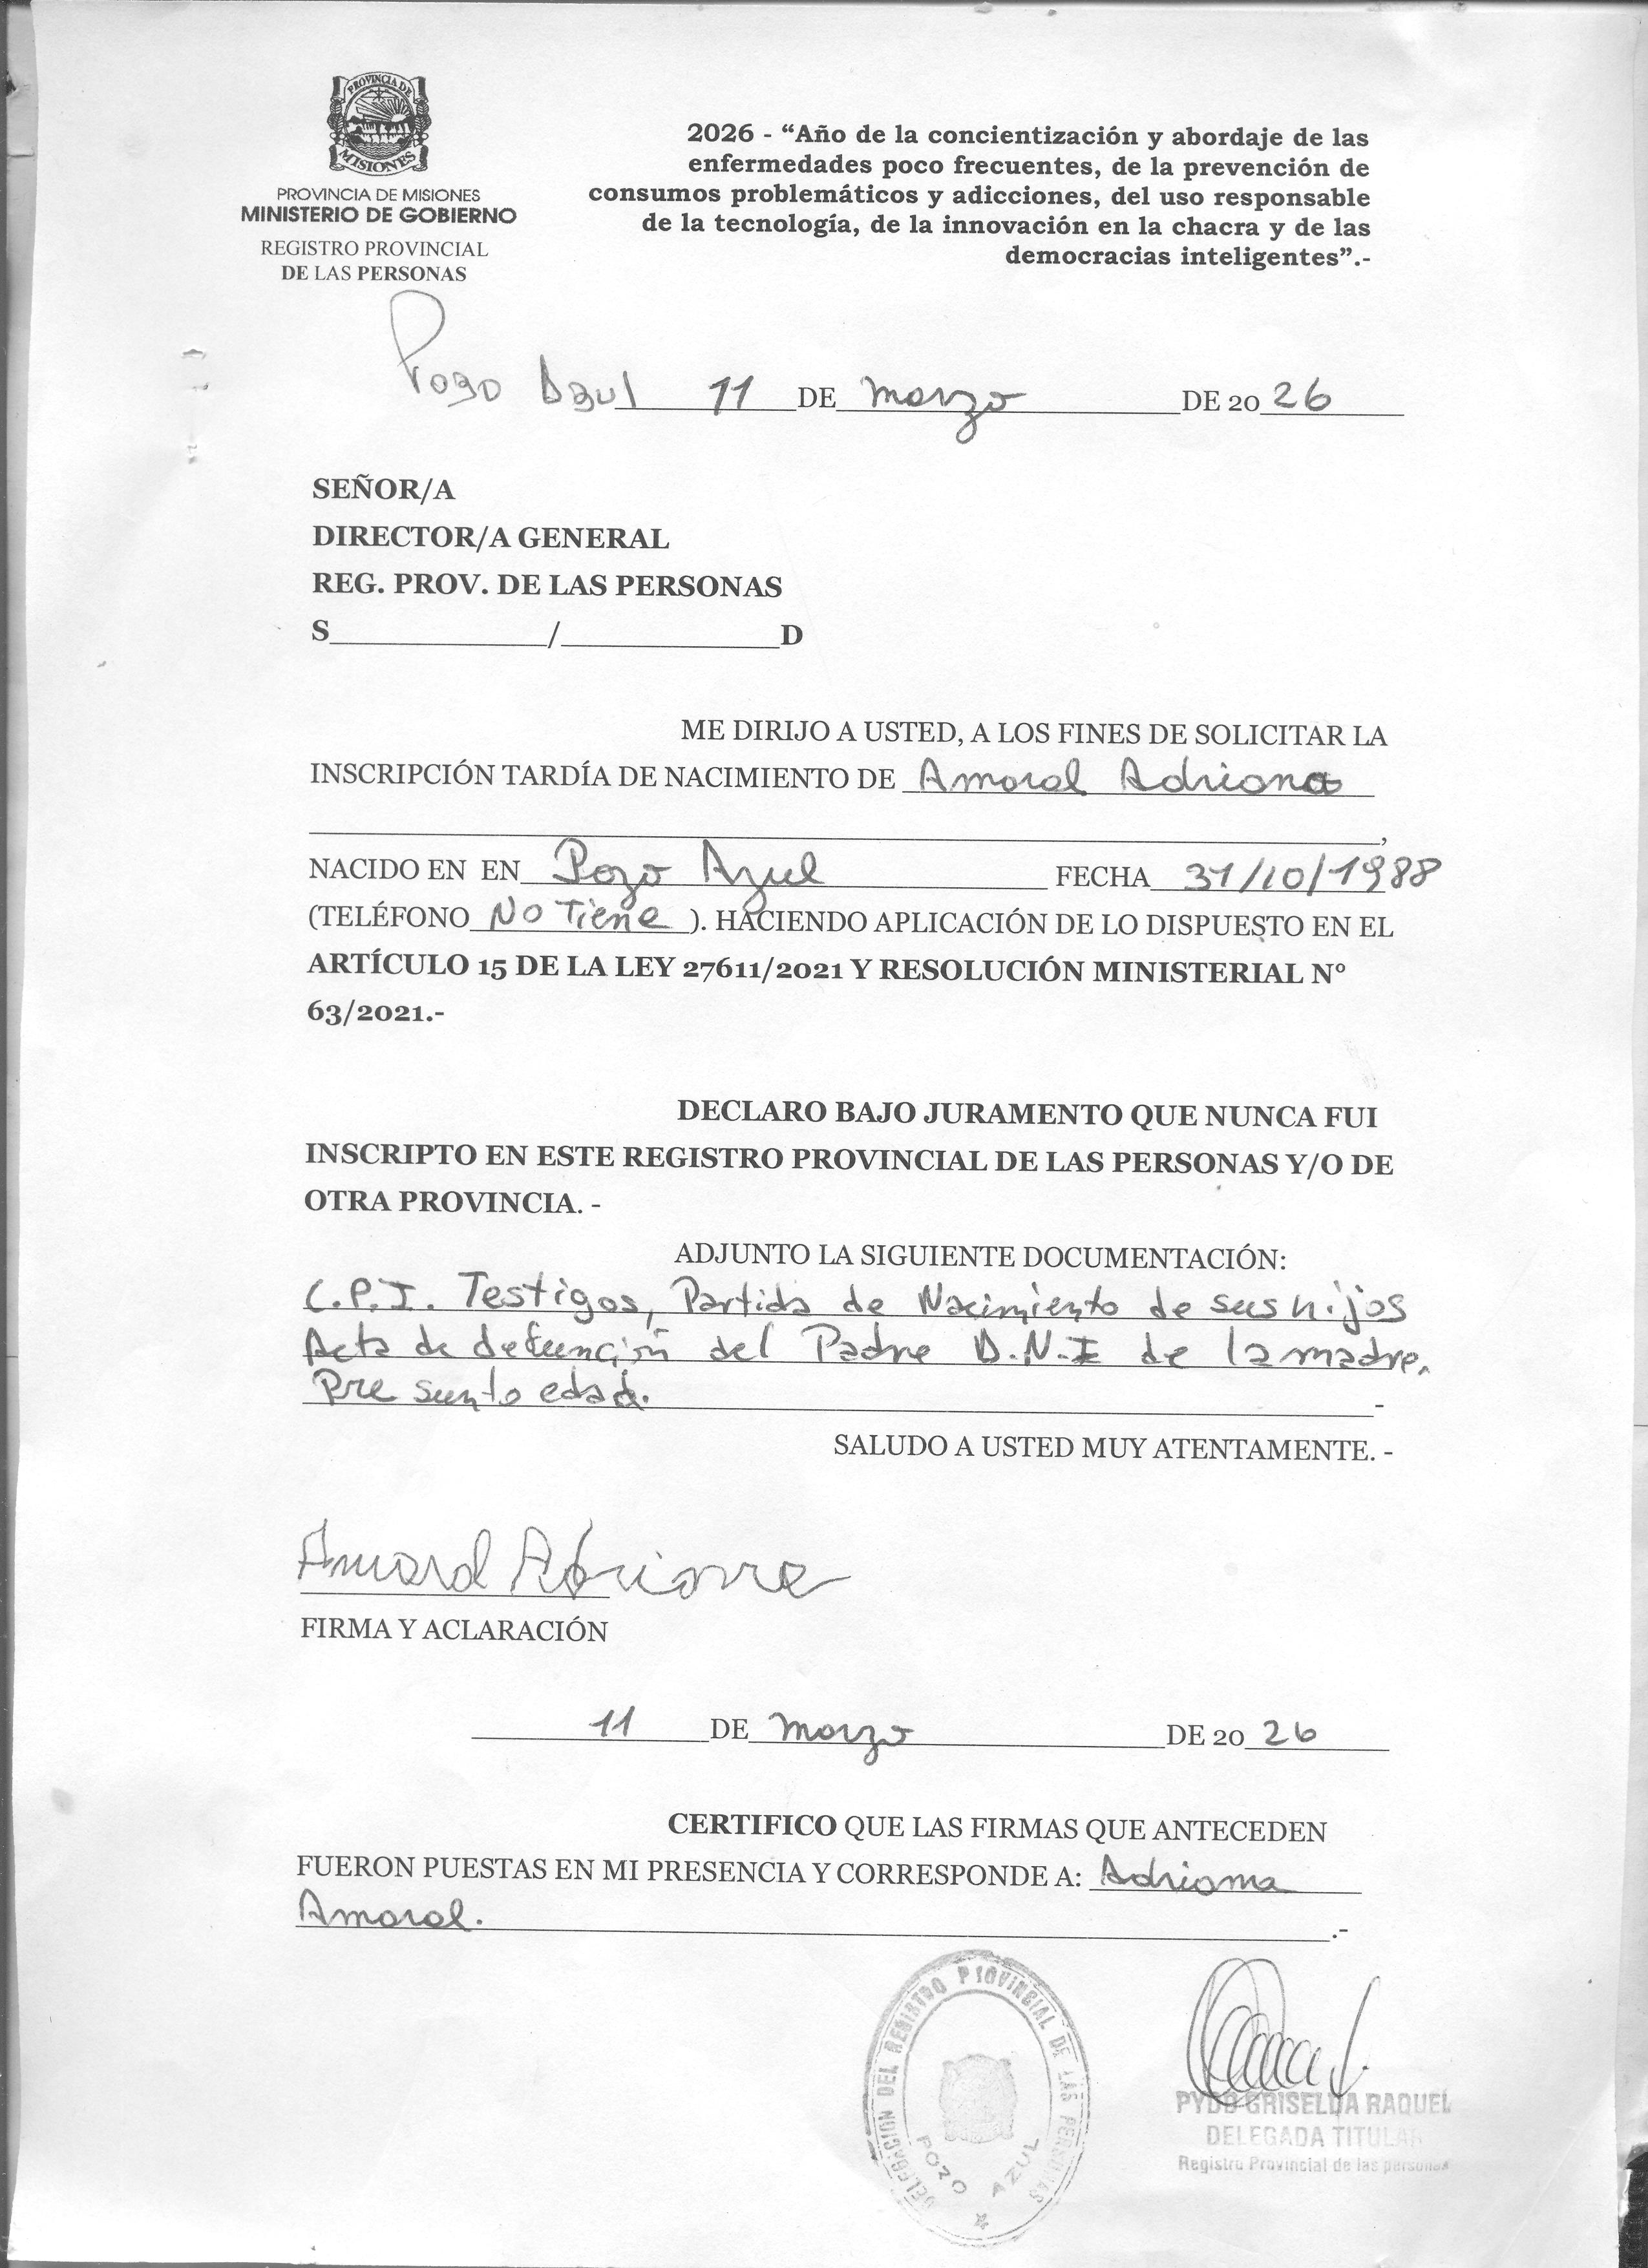 PROVINCIA DE
MISIONES
PROVINCIA DE MISIONES
MINISTERIO DE GOBIERNO
REGISTRO PROVINCIAL
DE LAS PERSONAS
2026 - “Año de la concientización y abordaje de las
enfermedades poco frecuentes, de la prevención de
consumos problemáticos y adicciones, del uso responsable
de la tecnología, de la innovación en la chacra y de las
democracias inteligentes”.-
Pozo Azul 11 DE Marzo DE 2026
SEÑOR/A
DIRECTOR/A GENERAL
REG. PROV. DE LAS PERSONAS
S____________/____________D
ME DIRIJO A USTED, A LOS FINES DE SOLICITAR LA
INSCRIPCIÓN TARDÍA DE NACIMIENTO DE Amaral Adriana
,
NACIDO EN EN Pozo Azul FECHA 31/10/1988
(TELÉFONO No Tiene ). HACIENDO APLICACIÓN DE LO DISPUESTO EN EL
ARTÍCULO 15 DE LA LEY 27611/2021 Y RESOLUCIÓN MINISTERIAL Nº
63/2021.-
DECLARO BAJO JURAMENTO QUE NUNCA FUI
INSCRIPTO EN ESTE REGISTRO PROVINCIAL DE LAS PERSONAS Y/O DE
OTRA PROVINCIA. -
ADJUNTO LA SIGUIENTE DOCUMENTACIÓN:
C.P.I. Testigos, Partida de Nacimiento de sus hijos
Acta de defunción del Padre D.N.I de la madre.
Pre sunto edad. -
SALUDO A USTED MUY ATENTAMENTE. -
Amaral Adriana
FIRMA Y ACLARACIÓN
11 DE Marzo DE 2026
CERTIFICO QUE LAS FIRMAS QUE ANTECEDEN
FUERON PUESTAS EN MI PRESENCIA Y CORRESPONDE A: Adriana
Amaral. .-
DELEGACION DEL REGISTRO PROVINCIAL DE LAS PERSONAS
POZO AZUL
GRISELDA RAQUEL
DELEGADA TITULAR
Registro Provincial de las personas